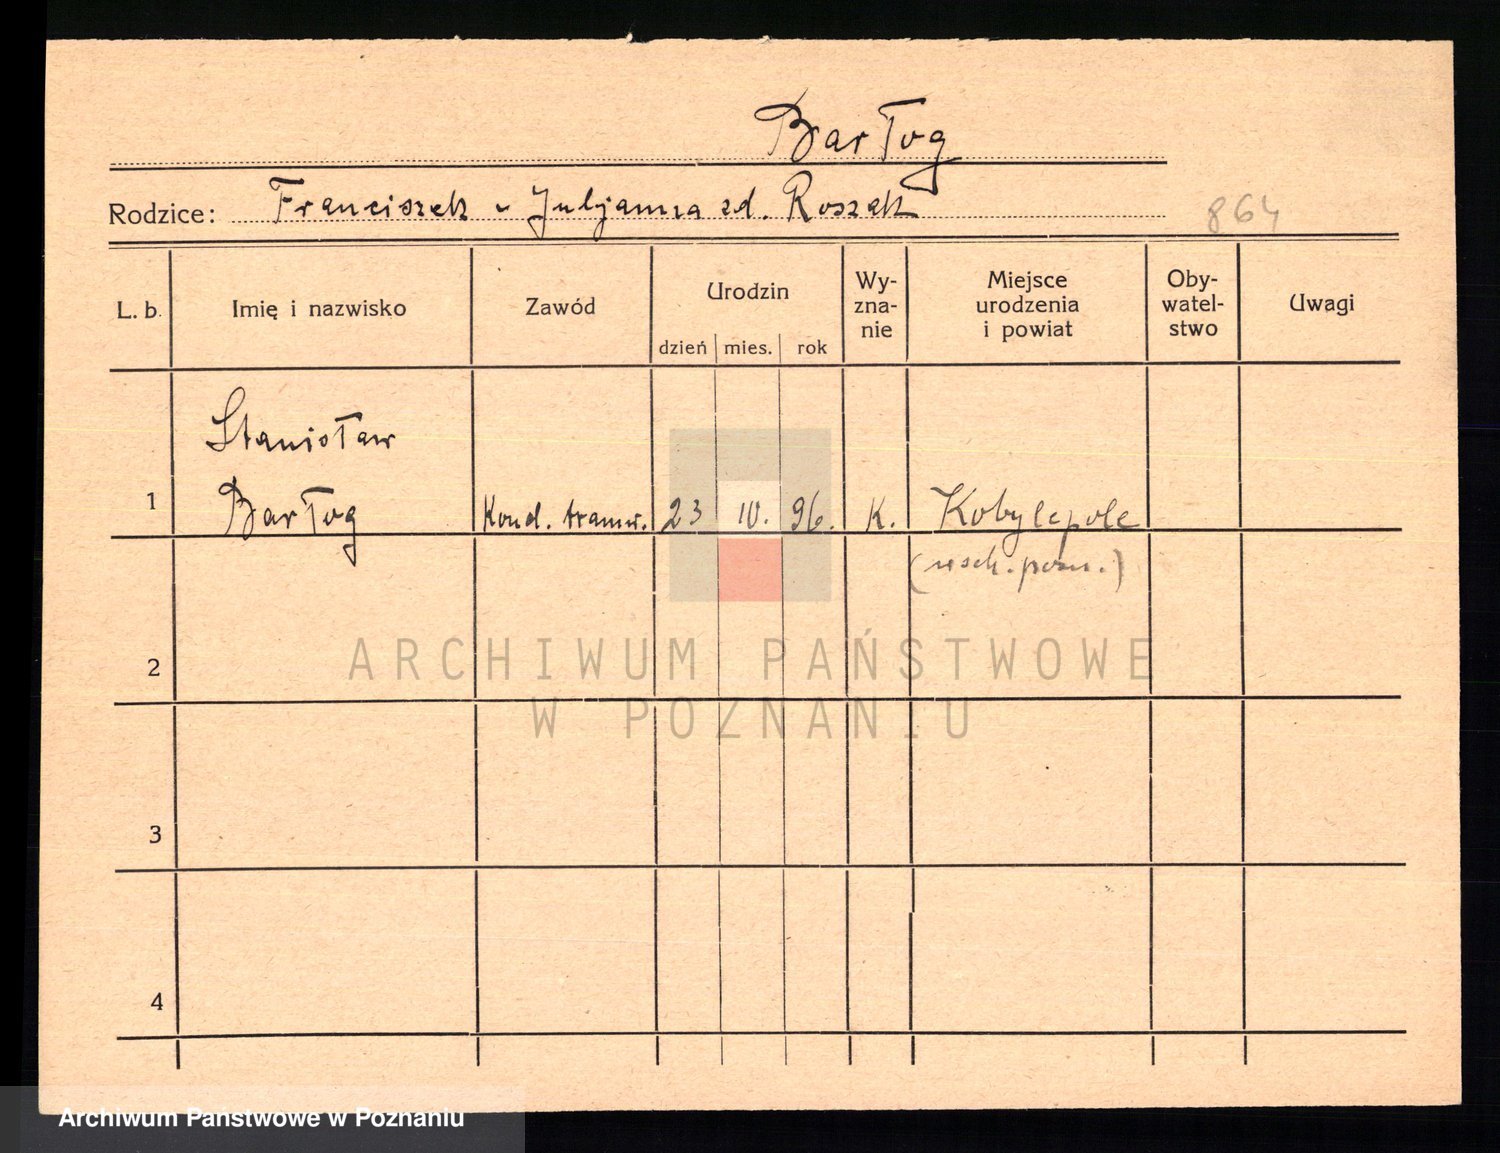 Bartog
Rodzice: Franciszek i Juljanna zd. Roszak
864
L. b. Imię i nazwisko Zawód Urodzin Wy-zna-nie Miejsce urodzenia i powiat Oby-watel-stwo Uwagi
dzień mies. rok
Stanisław
1 Bartog Kond. tramw. 23 IV. 96. K. Kobylepole
(wsch. pozn.)
2
ARCHIWUM PAŃSTWOWE
W POZNANIU
3
4
Archiwum Państwowe w Poznaniu